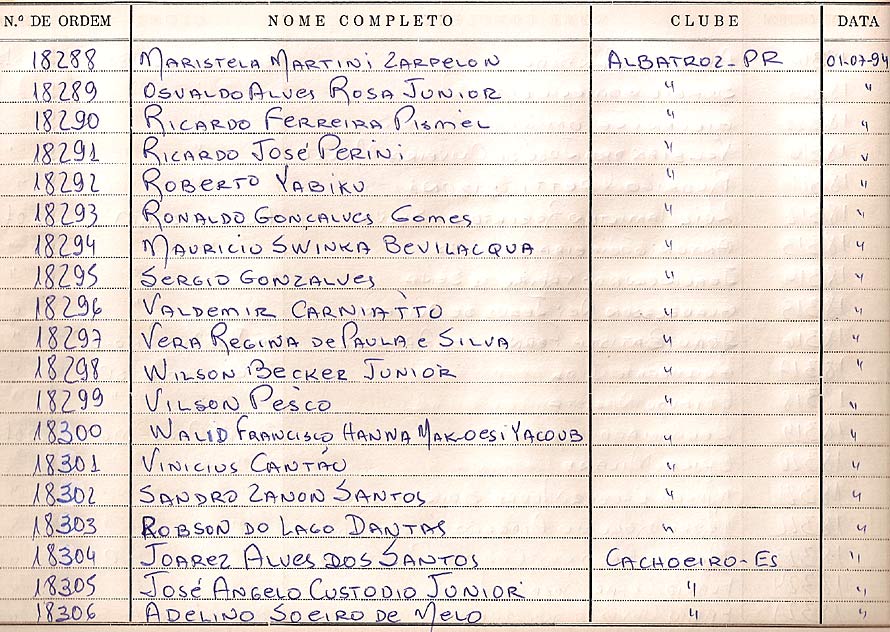 N.º DE ORDEM NOME COMPLETO CLUBE DATA
18288 MARISTELA MARTINI ZARPELON ALBATROZ-PR 01-07-94
18289 OSVALDO ALVES ROSA JUNIOR " "
18290 RICARDO FERREIRA PISMEL " "
18291 RICARDO JOSÉ PERINI " "
18292 ROBERTO YABIKU " "
18293 RONALDO GONÇALVES GOMES " "
18294 MAURICIO SWINKA BEVILACQUA " "
18295 SERGIO GONZALVES " "
18296 VALDEMIR CARNIATTO " "
18297 VERA REGINA de PAULA e SILVA " "
18298 WILSON BECKER JUNIOR " "
18299 VILSON PESCO " "
18300 WALID FRANCISCO HANNA YACOUB " "
18301 VINICIUS CANTÃO " "
18302 SANDRO ZANON SANTOS " "
18303 ROBSON DO LAGO DANTAS " "
18304 JOAREZ ALVES DOS SANTOS CACHOEIRO-ES "
18305 JOSÉ ANGELO CUSTODIO JUNIOR " "
18306 ADELINO SOEIRO DE MELO " "